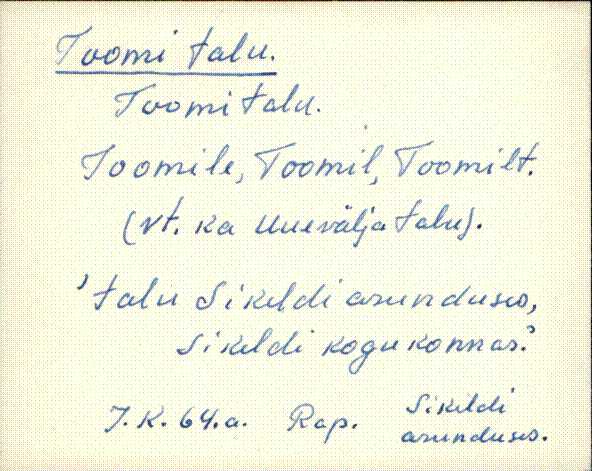 Toomi talu.
Toomi talu.
Toomile, Toomil, Toomilt.
(vt. ka Uuevälja talu).
'talu Sikeldi asunduses,
Sikeldi kogukonnas.'
J. K. 64. a. Rap. Sikeldi
asunduses.